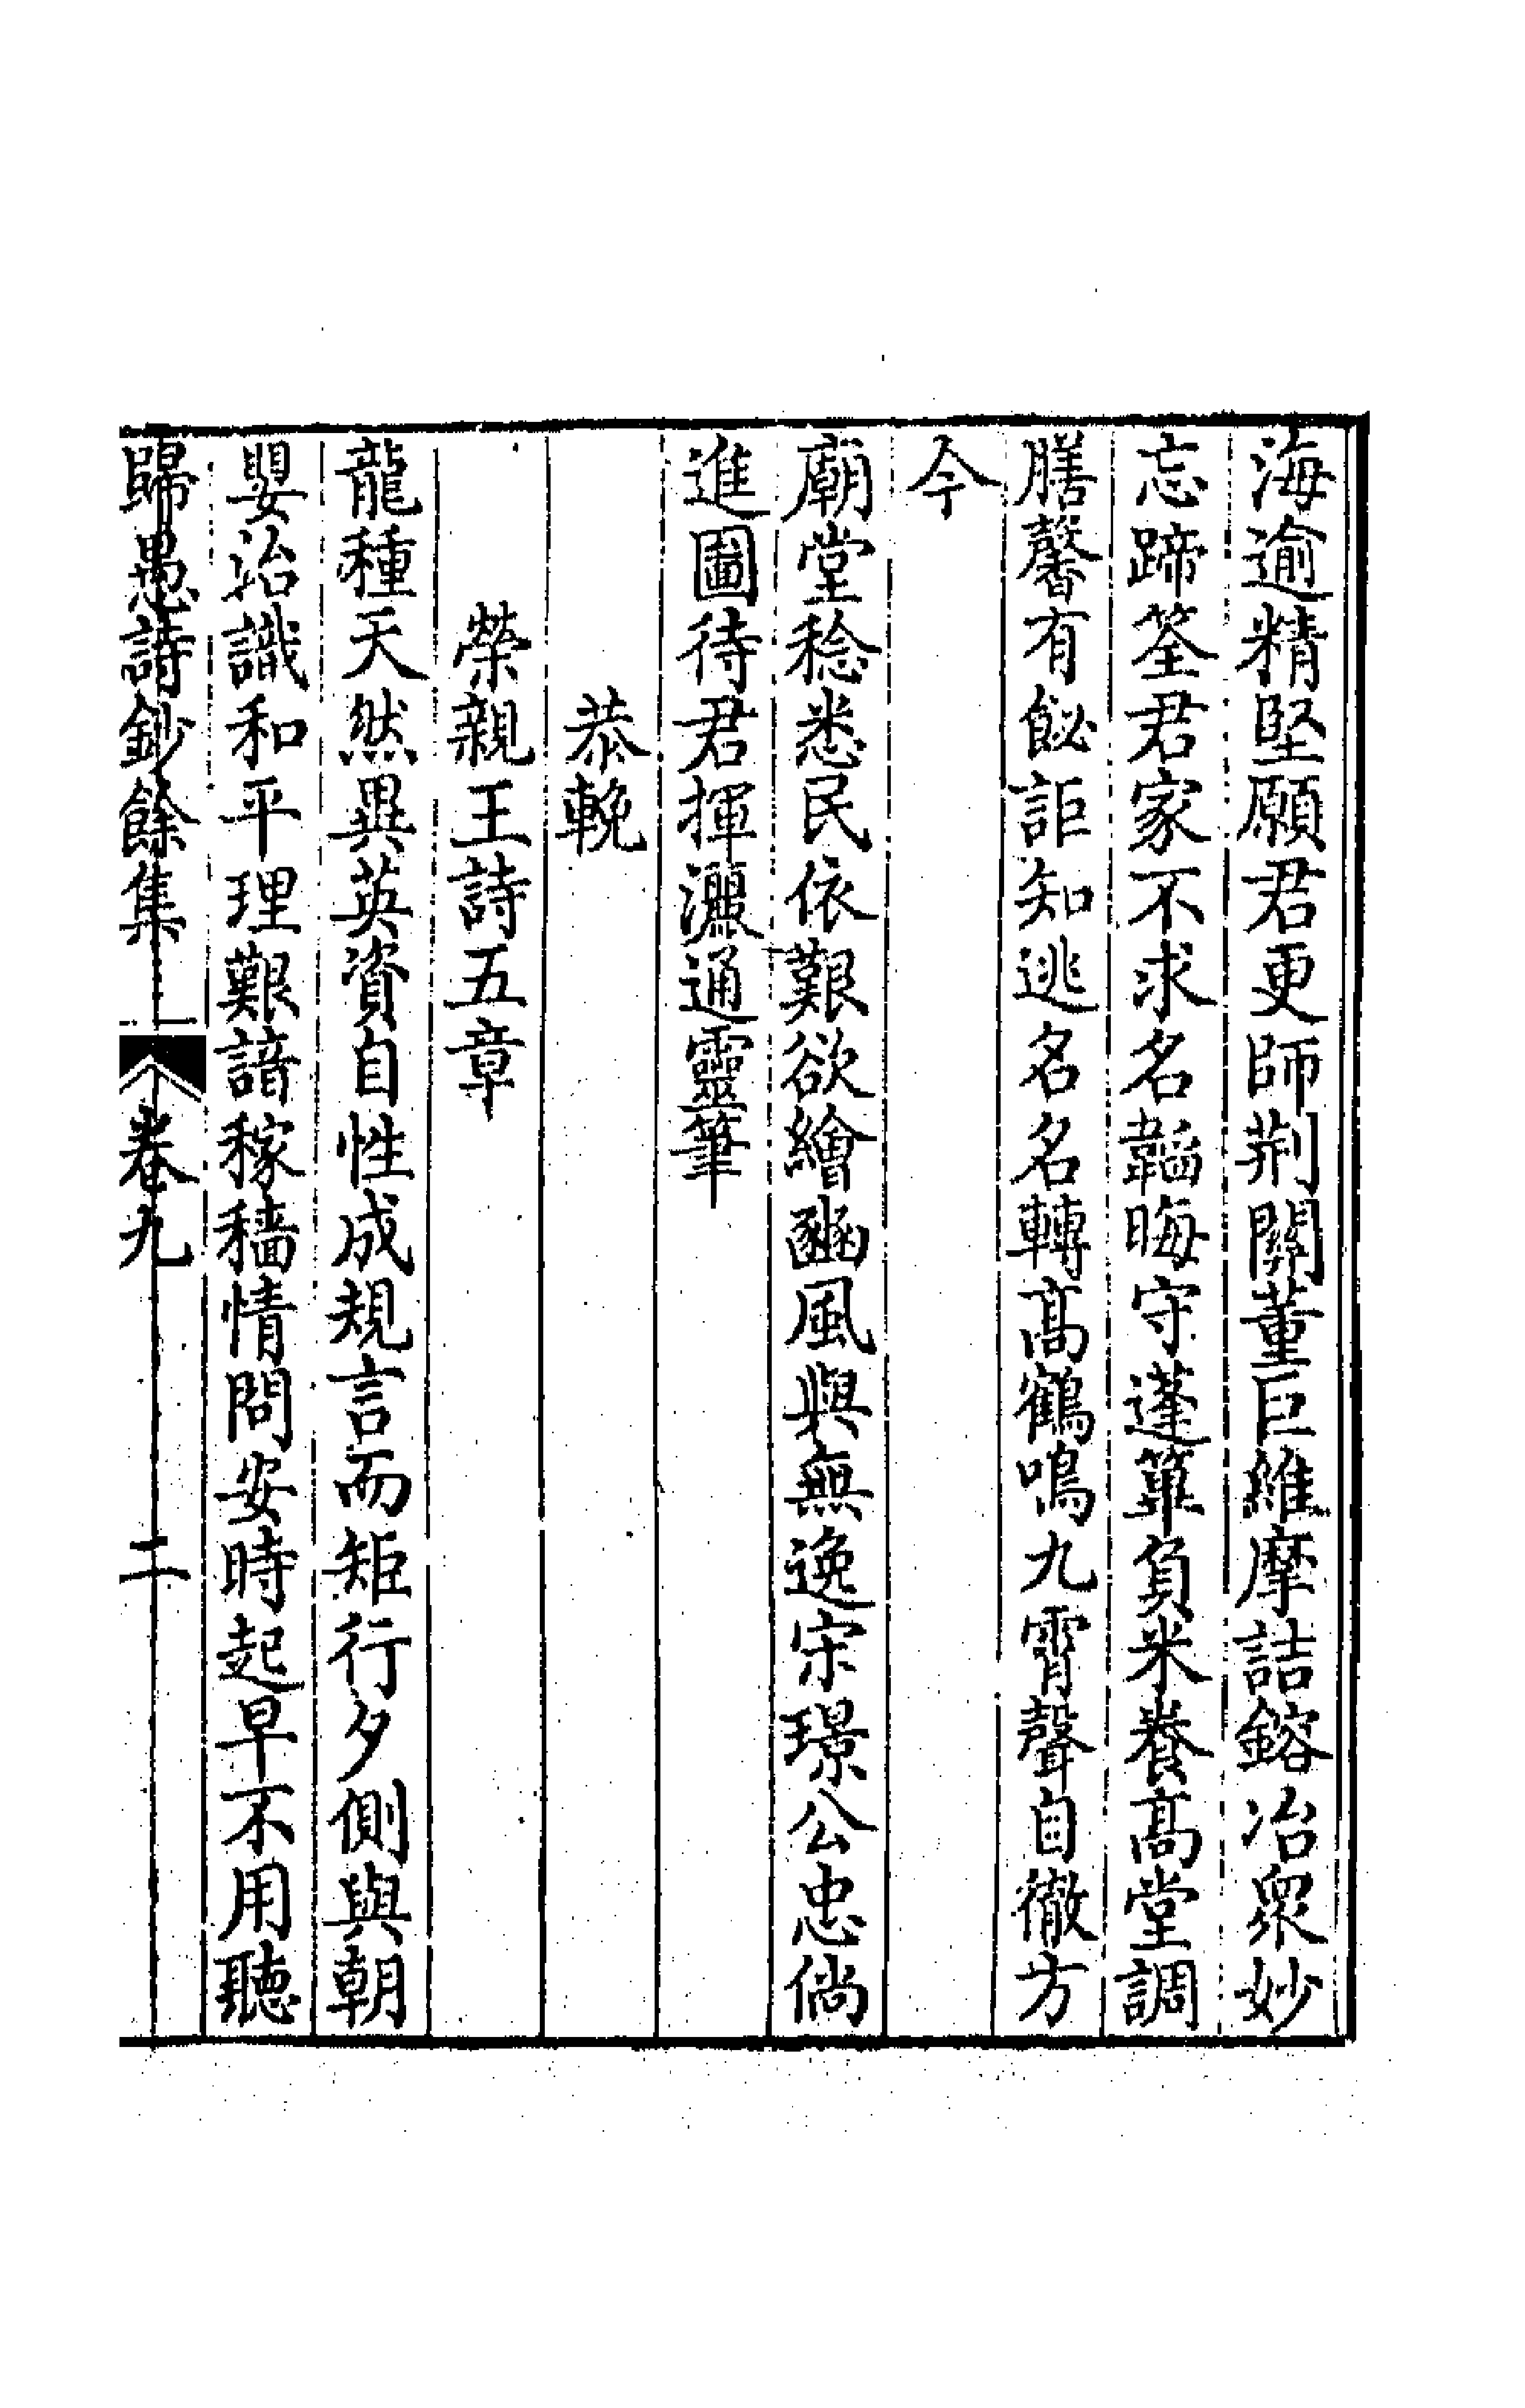 海逾精堅願君更師荆關董巨維摩詰鎔冶衆妙
忘蹄筌君家不求名韜晦守蓬蓽負米養高堂調
膳馨有飶詎知逃名名轉高鶴鳴九霄聲自徹方
今
廟堂稔悉民依艱欲繪豳風與無逸宋璟公忠倘
進圖待君揮灑通靈筆
恭輓
榮親王詩五章
龍種天然異英資自性成規言而矩行夕側與朝
嬰治識和平理艱諳稼穡情問安時起早不用聽
歸愚詩鈔餘集
卷九
二